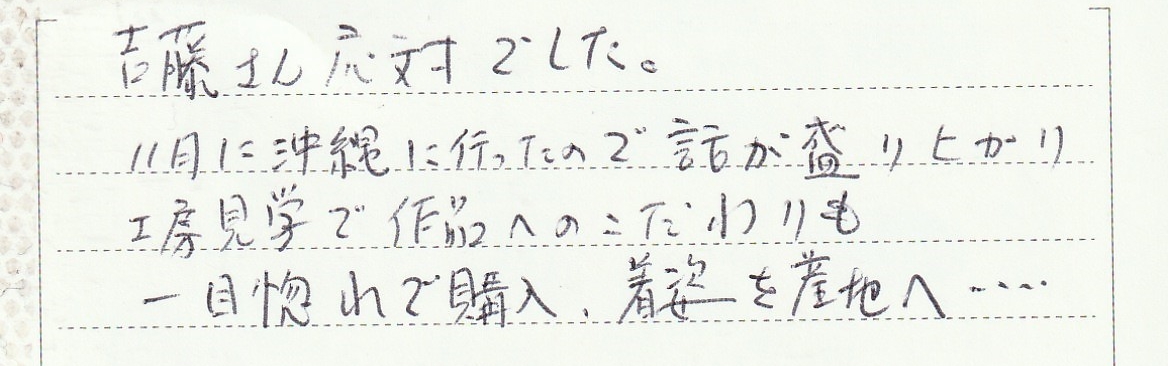 吉藤さん応対でした。
11月に沖縄に行ったので話が盛り上がり
工房見学で作品へのこだわりも
一目惚れで購入、着姿を産地へ‥‥